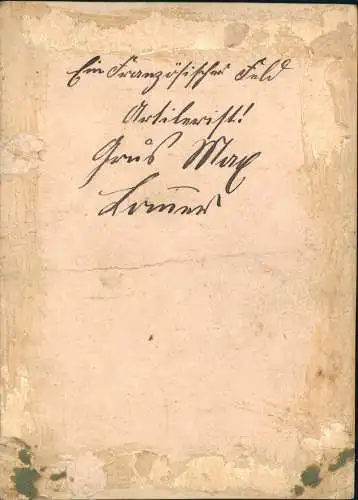 Ein Französischer Feld
Artilerist!
Gruß Max